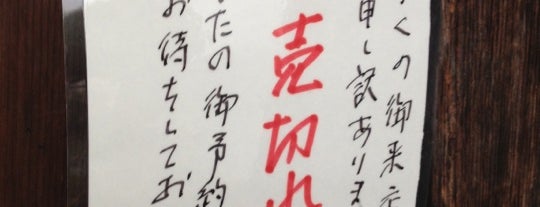 くの御来店
申し訳ありま
売切れ
たの御予約
お待ちしてお